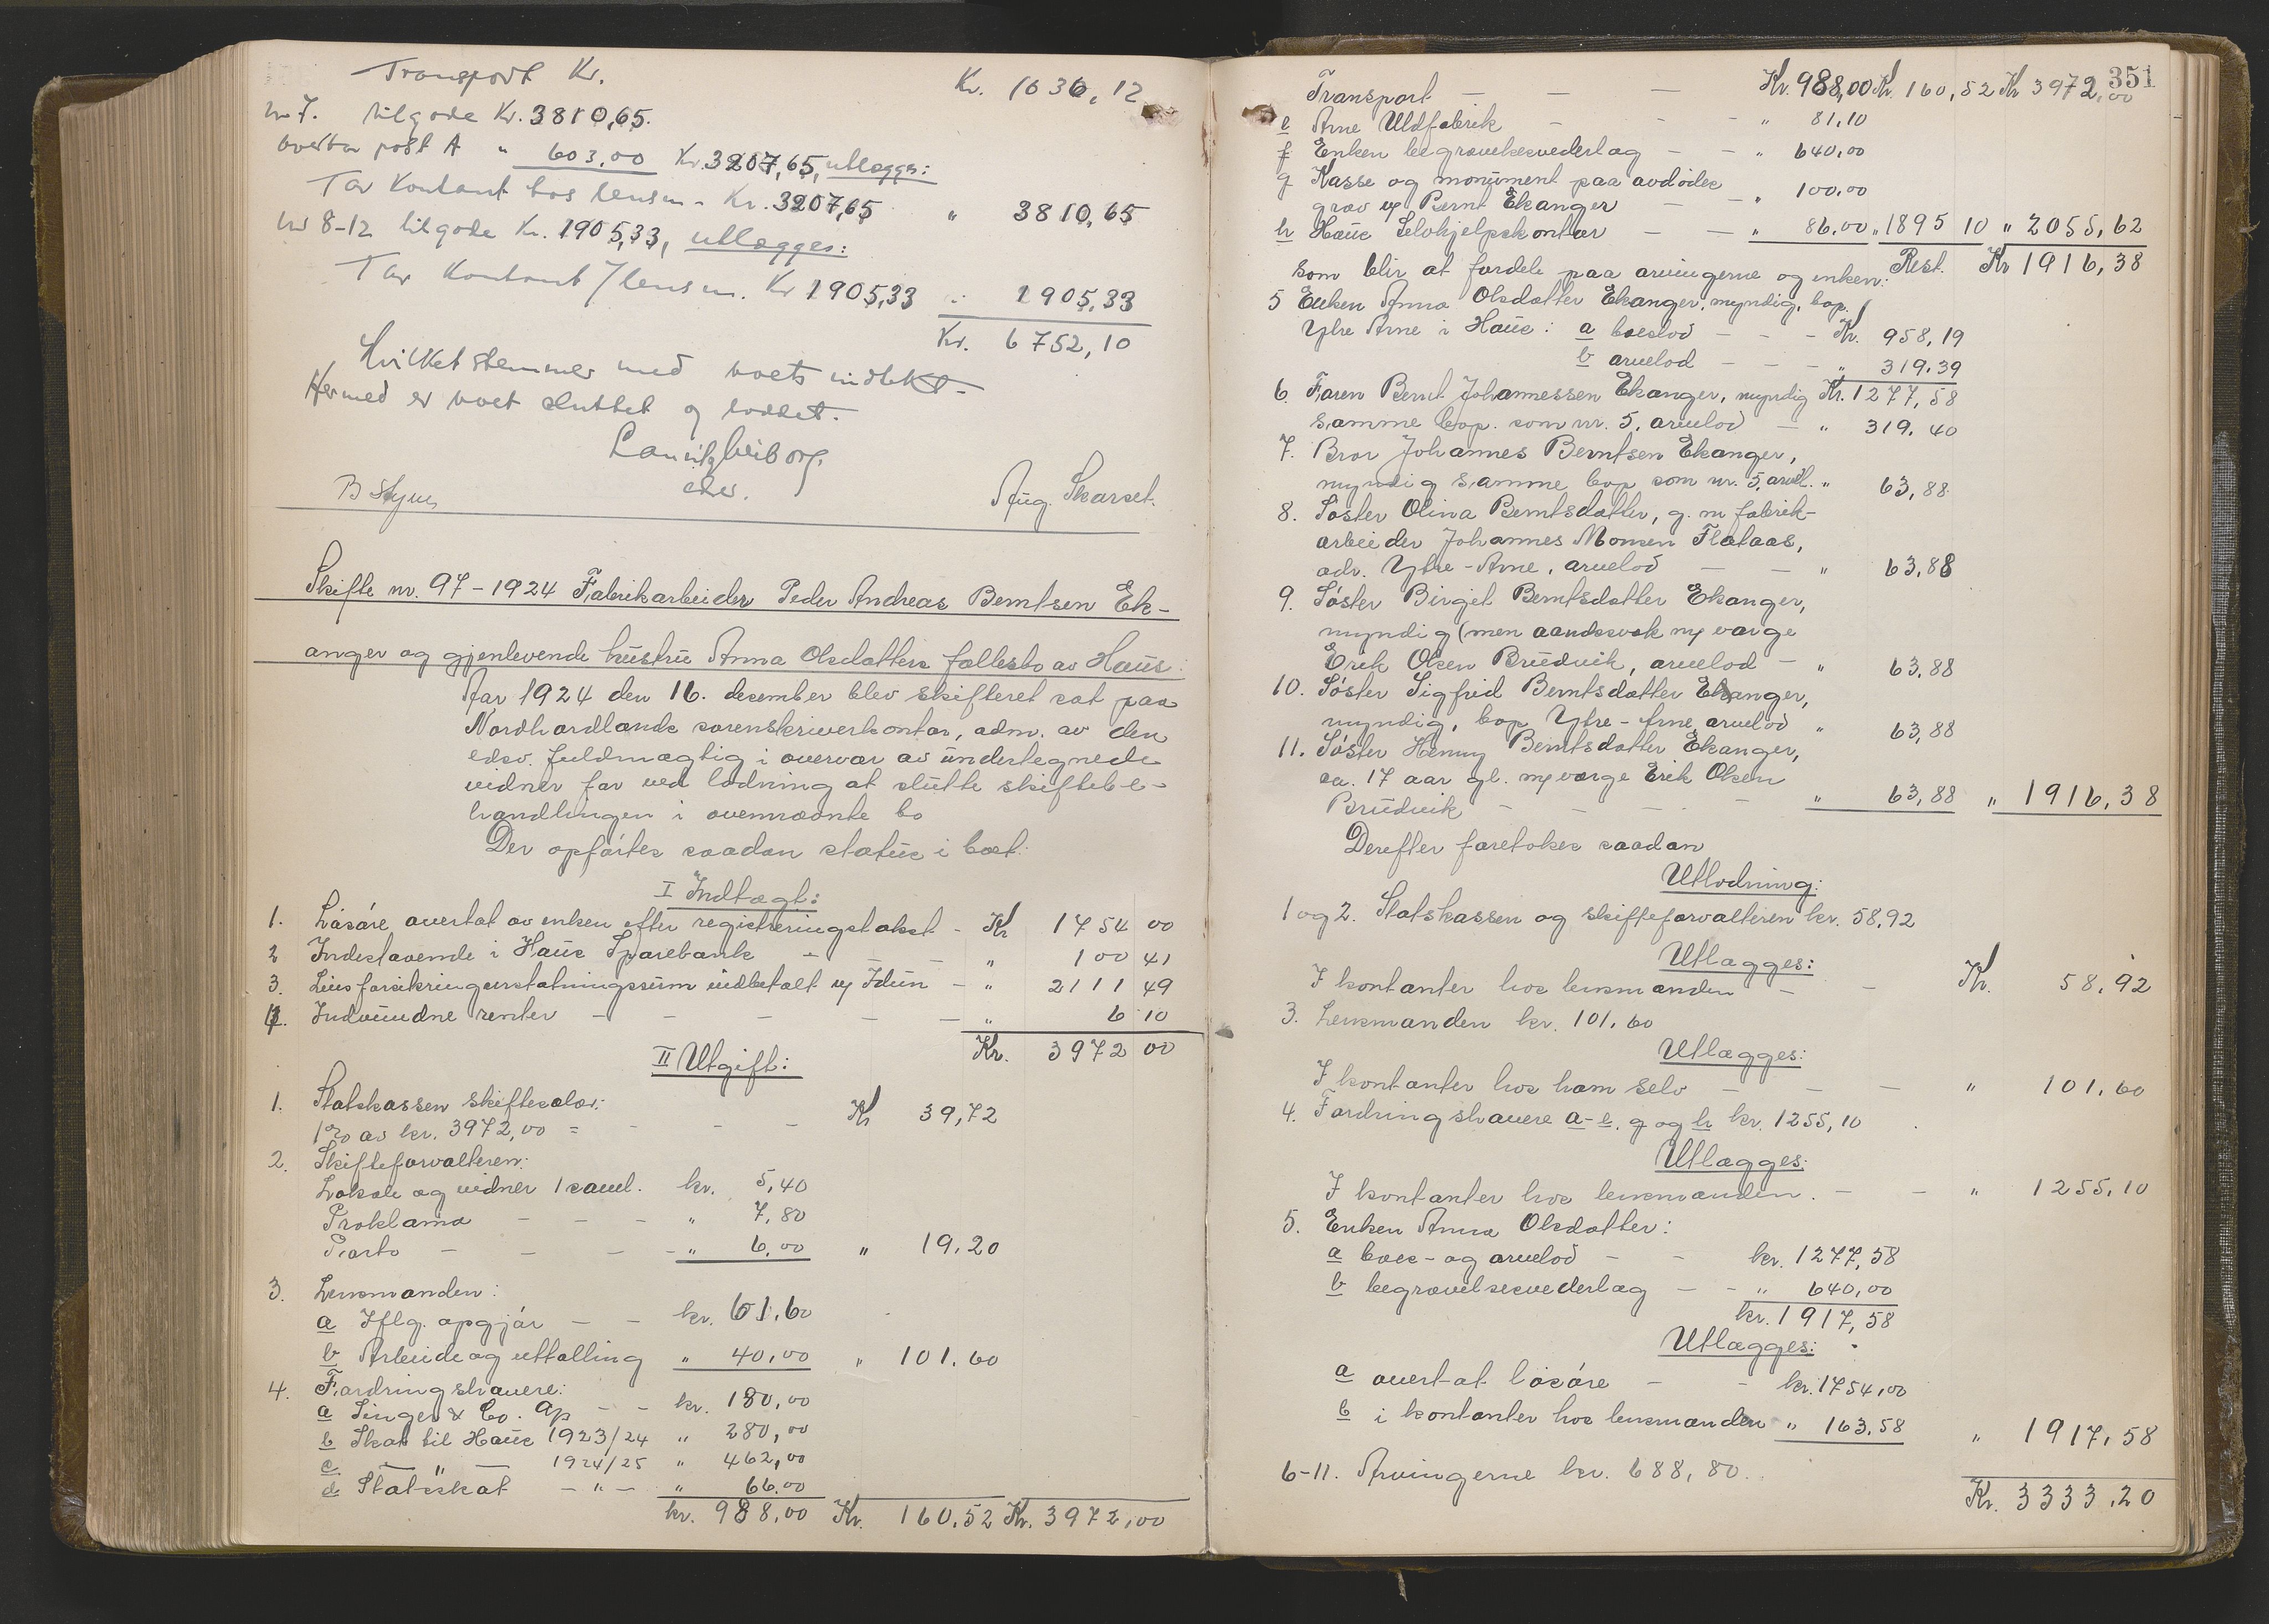 Transport Kr. Kr. 1036,12
nr 7. tilgode Kr. 3810,65.
overtar post A " 603,00 Kr. 3207,65, utlægges:
Tar Kontant hos lensm. Kr. 3207,65 " 3810,65
nr 8-12 tilgode Kr. 1905,33, utlægges:
Tar Kontant / lensm. Kr 1905,33 " 1905,33
Kr. 6752,10
Hvilket stemmer med boets indtekt.
Hermed er boet sluttet og loddet.
edsv.
Aug. Skarset.
Skifte nr. 97-1924 Fabrikarbeider Peder Andreas Berntsen Ek-
anger og gjenlevende hustru Anna Olsdatters fællesbo av Haus:
Aar 1924 den 16. desember blev skifteret sat paa
Nordhordlands sorenskriverkontor, adm. av den
edsv. fuldmægtig i overvær av undertegnede
vidner for ved lodning at slutte skiftebe-
handlingen i ovennævnte bo
Der opførtes saadan status i boet:
I Indtægt:
1. Løsøre overtat av enken efter registreringstakst - Kr 1754 00
2 Indestaaende i Haus Sparebank - - - " 100 41
3. Livsforsikringserstatningssum indbetalt av Idun - " 2111 49
4. Indvundne renter - - - - - " 6 10
Kr. 3972 00
II Utgift:
1. Statskassen skiftesalær:
1% av kr. 3972,00 = - - - Kr 39,72
2. Skifteforvalteren:
Lokale og vidner 1 saml. kr. 5,40
Proklama - - - " 7,80
Porto - - - - " 6,00 " 19.20
3. Lensmanden:
a Iflg. opgjør - - kr. 61.60
b Arbeide og uttælling " 40,00 " 101.60
4. Fordringshavere:
a Singer & Co. Ap - - kr. 180,00
b Skat til Haus 1923/24 " 280,00
c - " - 1924/25 " 462,00
d Statsskat - " - " 66.00
kr. 988,00 Kr. 160.52 Kr. 3972,00
351
Transport - - - Kr. 988,00 Kr. 160,52 Kr 3972,00
e Arne Uldfabrik - - - " 81,10
f Enken begravelsesvederlag - - " 640,00
g Kasse og monument paa avdødes
grav v/ Bernt Ekanger - - " 100.00
h Haus Selvhjelpskontor - - " 86.00 " 1895 10 " 2055,62
Rest. Kr 1916,38
som blir at fordele paa arvingerne og enken:
5 Enken Anna Olsdatter Ekanger, myndig, bop.
Ytre Arne i Haus: a boeslod - - - Kr. 958,19
b arvelod - - - " 319.39
Kr. 1277,58
6. Faren Bernt Johannessen Ekanger, myndig
samme bop. som nr. 5, arvelod - " 319.40
7. Bror Johannes Berntsen Ekanger,
myndig samme bop som nr. 5, arvel. " 63,88
8. Søster Olina Berntsdatter, g. m fabrik-
arbeider Johannes Monsen Flataas,
adr. Ytre-Arne, arvelod - - " 63,88
9. Søster Birgit Berntsdatter Ekanger,
myndig (men aandssvak m/ værge
Erik Olsen Brudvik, arvelod - " 63,88
10. Søster Sigfrid Berntsdatter Ekanger,
myndig, bop Ytre-Arne, arvelod " 63,88
11. Søster Henny Berntsdatter Ekanger,
ca. 17 aar gl. m/ værge Erik Olsen
Brudvik - - - - " 63,88 " 1916,38
Derefter foretokes saadan
Utlodning:
1 og 2. Statskassen og skifteforvalteren kr. 58,92
Utlægges:
I kontanter hos lensmanden - - Kr. 58,92
3. Lensmanden kr. 101.60
Utlægges:
I kontanter hos ham selv - - - " 101,60
4. Fordringshavere a-e, g og h kr. 1255,10
Utlægges:
I kontanter hos lensmanden. - - " 1255,10
5. Enken Anna Olsdatter:
a boes- og arvelod - - kr. 1277,58
b begravelsesvederlag - - " 640,00
kr. 1917,58
Utlægges:
a overtat løsøre - - kr. 1754,00
b i kontanter hos lensmanden " 163,58 " 1917,58
6-11. Arvingerne kr. 688,80.
Kr. 3333,20